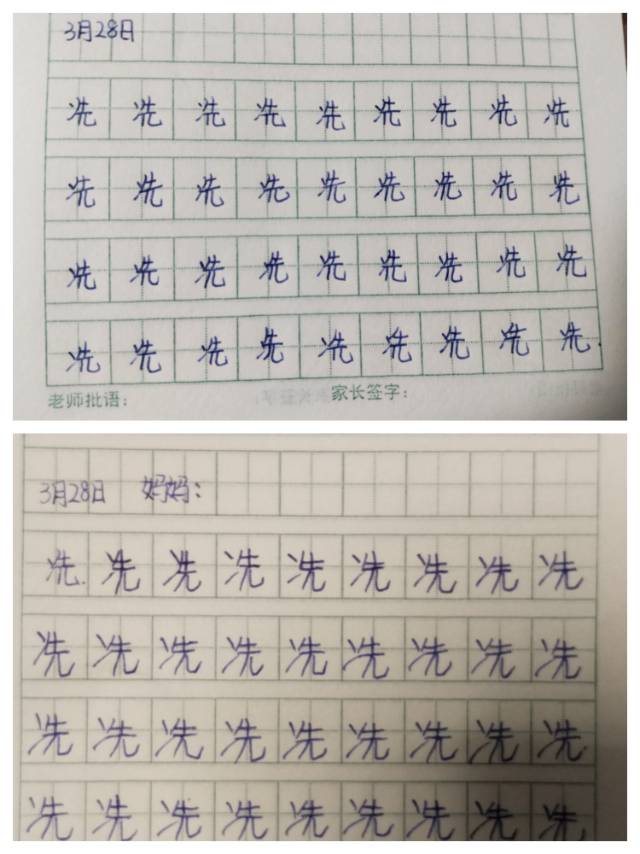 3月28日
冼冼冼冼冼冼冼冼冼
冼冼冼冼冼冼冼冼冼
冼冼冼冼冼冼冼冼冼
冼冼冼冼冼冼冼冼冼
老师批语： 家长签字：
3月28日 妈妈：
冼冼冼冼冼冼冼冼冼
冼冼冼冼冼冼冼冼冼
冼冼冼冼冼冼冼冼冼
冼冼冼冼冼冼冼冼冼